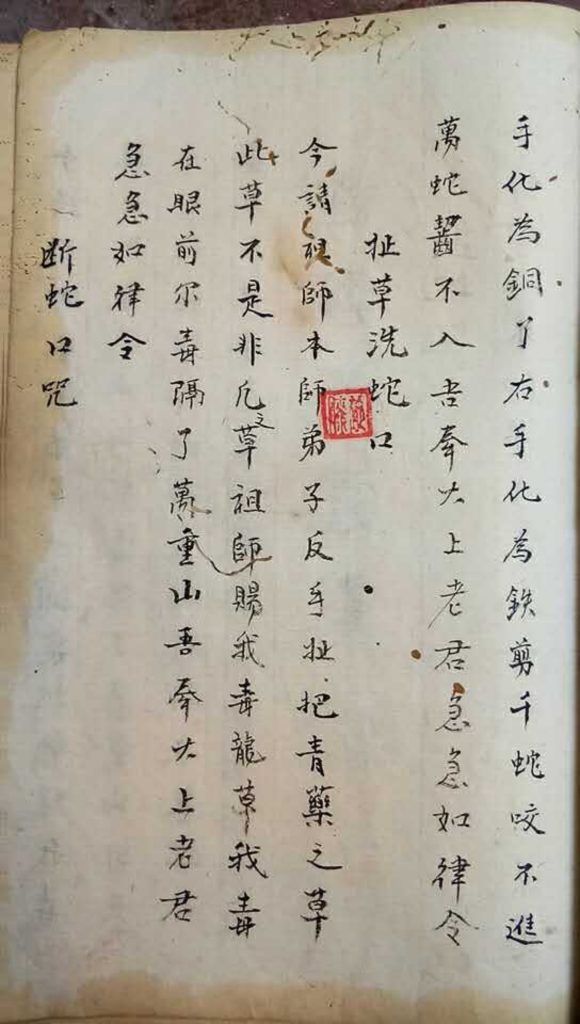 手化為銅丫右手化為鉄剪千蛇咬不進
萬蛇齧不入吾奉大上老君急急如律令
扯草洗蛇口
今請祖師本師弟子反手扯把青藥之草
此草不是非凡之草祖師賜我毒龍草我毒
在眼前尔毒隔了萬重山吾奉大上老君
急急如律令
断蛇口咒